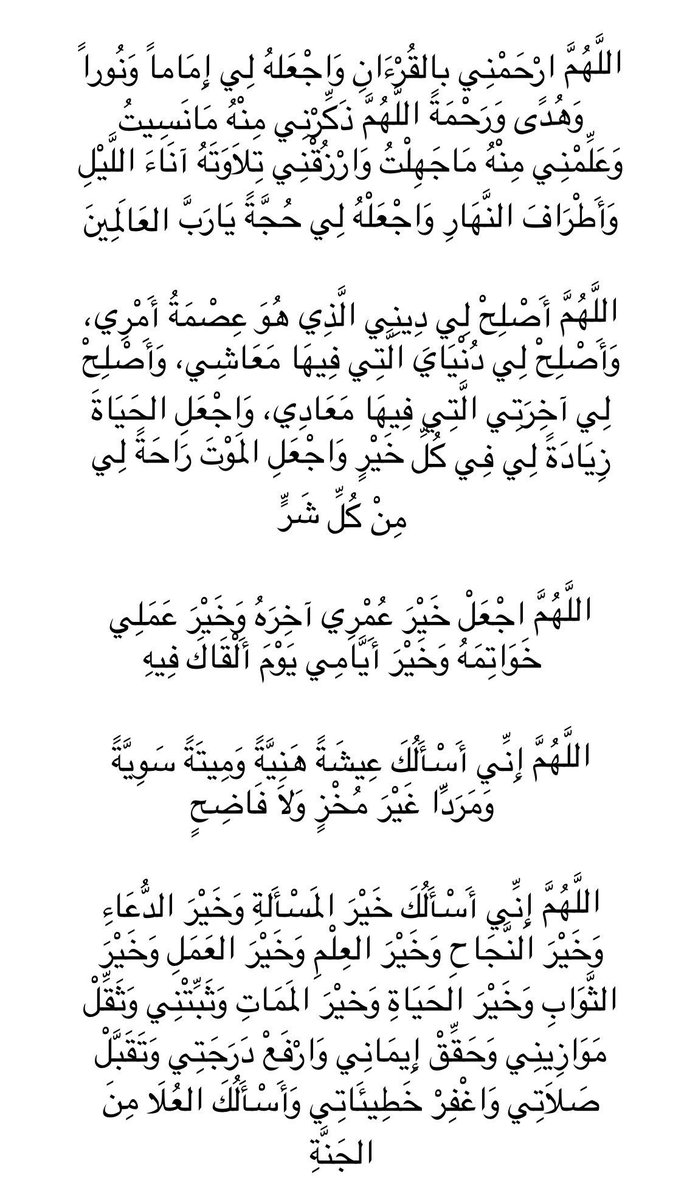 اللَّهُمَّ ارْحَمْنِي بالقُرْءَانِ وَاجْعَلهُ لِي إِمَاماً وَنُوراً
وَهُدًى وَرَحْمَةً اللَّهُمَّ ذَكِّرْنِي مِنْهُ مَانَسِيتُ
وَعَلِّمْنِي مِنْهُ مَاجَهِلْتُ وَارْزُقْنِي تِلاَوَتَهُ آنَاءَ اللَّيْلِ
وَأَطْرَافَ النَّهَارِ وَاجْعَلْهُ لِي حُجَّةً يَارَبَّ العَالَمِينَ
اللَّهُمَّ أَصْلِحْ لِي دِينِي الَّذِي هُوَ عِصْمَةُ أَمْرِي،
وَأَصْلِحْ لِي دُنْيَايَ الَّتِي فِيهَا مَعَاشِي، وَأَصْلِحْ
لِي آخِرَتِي الَّتِي فِيهَا مَعَادِي، وَاجْعَلِ الحَيَاةَ
زِيَادَةً لِي فِي كُلِّ خَيْرٍ وَاجْعَلِ المَوْتَ رَاحَةً لِي
مِنْ كُلِّ شَرٍّ
اللَّهُمَّ اجْعَلْ خَيْرَ عُمْرِي آخِرَهُ وَخَيْرَ عَمَلِي
خَوَاتِمَهُ وَخَيْرَ أَيَّامِي يَوْمَ أَلْقَاكَ فِيهِ
اللَّهُمَّ إِنِّي أَسْأَلُكَ عِيشَةً هَنِيَّةً وَمِيتَةً سَوِيَّةً
وَمَرَدًّا غَيْرَ مُخْزٍ وَلاَ فَاضِحٍ
اللَّهُمَّ إِنِّي أَسْأَلُكَ خَيْرَ المَسْأَلةِ وَخَيْرَ الدُّعَاءِ
وَخَيْرَ النَّجَاحِ وَخَيْرَ العِلْمِ وَخَيْرَ العَمَلِ وَخَيْرَ
الثَّوَابِ وَخَيْرَ الحَيَاةِ وَخيْرَ المَمَاتِ وَثَبِّتْنِي وَثَقِّلْ
مَوَازِينِي وَحَقِّقْ إِيمَانِي وَارْفَعْ دَرَجَتِي وَتَقَبَّلْ
صَلاَتِي وَاغْفِرْ خَطِيئَاتِي وَأَسْأَلُكَ العُلَا مِنَ
الجَنَّةِ